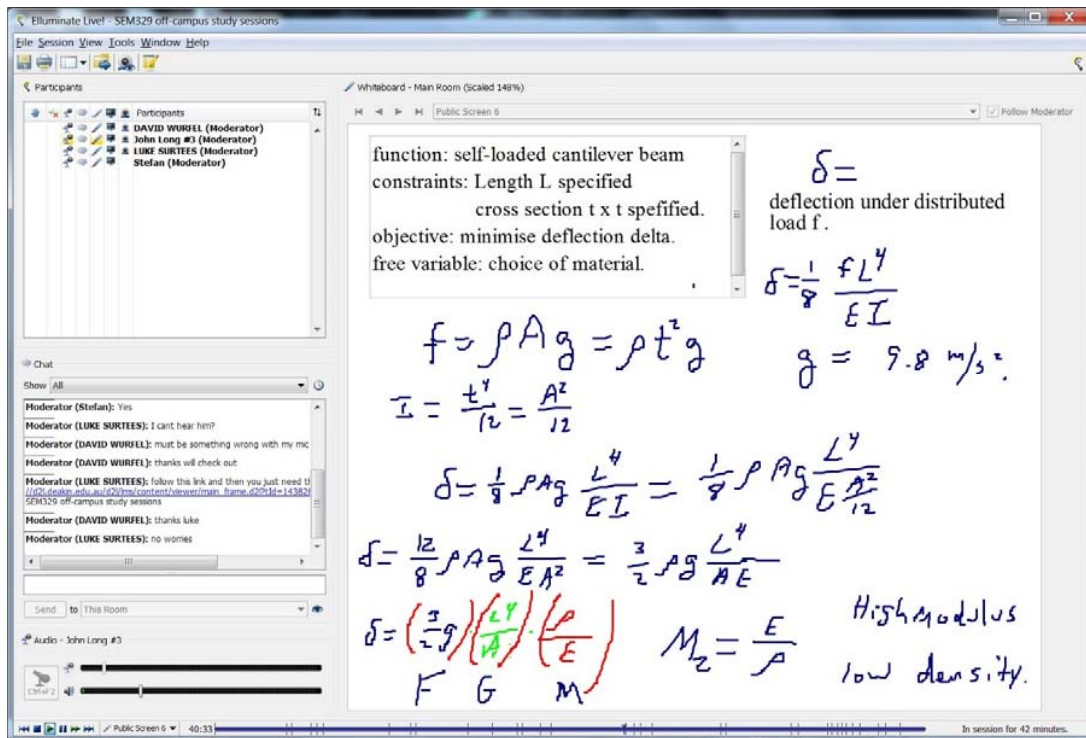 Elluminate Live! - SEM329 off-campus study sessions
File Session View Tools Window Help
Participants
Participants
DAVID WURFEL (Moderator)
John Long #3 (Moderator)
LUKE SURTEES (Moderator)
Stefan (Moderator)
Chat
Show All
Moderator (Stefan): Yes
Moderator (LUKE SURTEES): I cant hear him?
Moderator (DAVID WURFEL): must be something wrong with my mic
Moderator (DAVID WURFEL): thanks will check out
Moderator (LUKE SURTEES): follow this link and then you just need t
SEM329 off-campus study sessions
Moderator (DAVID WURFEL): thanks luke
Moderator (LUKE SURTEES): no worries
Send to This Room
Audio - John Long #3
Ctrl+F2
Whiteboard - Main Room (Scaled 148%)
Public Screen 6
Follow Moderator
function: self-loaded cantilever beam
constraints: Length L specified
cross section t x t spefified.
objective: minimise deflection delta.
free variable: choice of material.
δ =
deflection under distributed
load f .
δ = 1/8 fL⁴/EI
f = ρAg = ρt²g
g = 9.8 m/s².
I = t⁴/12 = A²/12
δ = 1/8 ρAg L⁴/EI = 1/8 ρAg L⁴/(E A²/12)
δ = 12/8 ρAg L⁴/EA² = 3/2 ρg L⁴/AE
δ = (3/2 g)(L⁴/A)·(ρ/E)
F G M
M₂ = E/ρ
High Modulus
low density.
Public Screen 6
40:33
In session for 42 minutes.